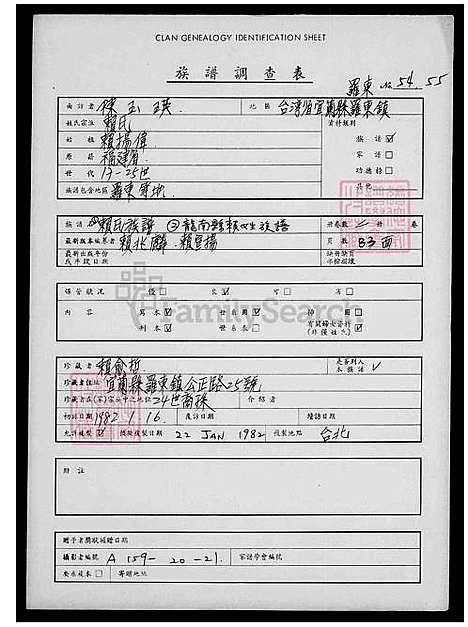 CLAN GENEALOGY IDENTIFICATION SHEET
族譜調查表
羅東 No. 54. 55
面訪者 陳玉瑛 地區 台灣省宜蘭縣羅東鎮
姓氏宗位 賴氏 資料類別
始祖 賴揚偉 族譜 ☑
原籍 福建省 家譜 ☐
世代 17-25世 功德榜 ☐
族譜包含地區 羅東等地 其他
族譜 ①賴氏族譜 ②龍南縣賴姓族譜 冊卷數 冊 卷
最新版本編纂者 賴北麟. 賴聖揚 頁數 83面
最新出版年份
或年號日期
保管狀況 優 ☐ 良 ☑ 可 ☐ 劣 ☐
內容 寫本 ☑ 世系圖 ☑ 傳記 ☐ 有關婦女資料
刊本 ☑ 世系表 ☐ (非僅姓氏)
FamilySearch
珍藏者 賴俞哲 是否列入
本族譜 ✓
珍藏者住址 宜蘭縣羅東鎮公正路25號
珍藏者在(家)宗族中之地位 24世裔孫 介紹者
初訪日期 1982. 1. 16. 復訪日期 續訪日期
允許複製 ☑ 複製日期 22 JAN 1982 複製地點 台北
附註
贈予者獎狀頒贈日期
攝影者編號 A 159- 20-21. 家譜學會編號
要求複本 ☐ 寄贈地址